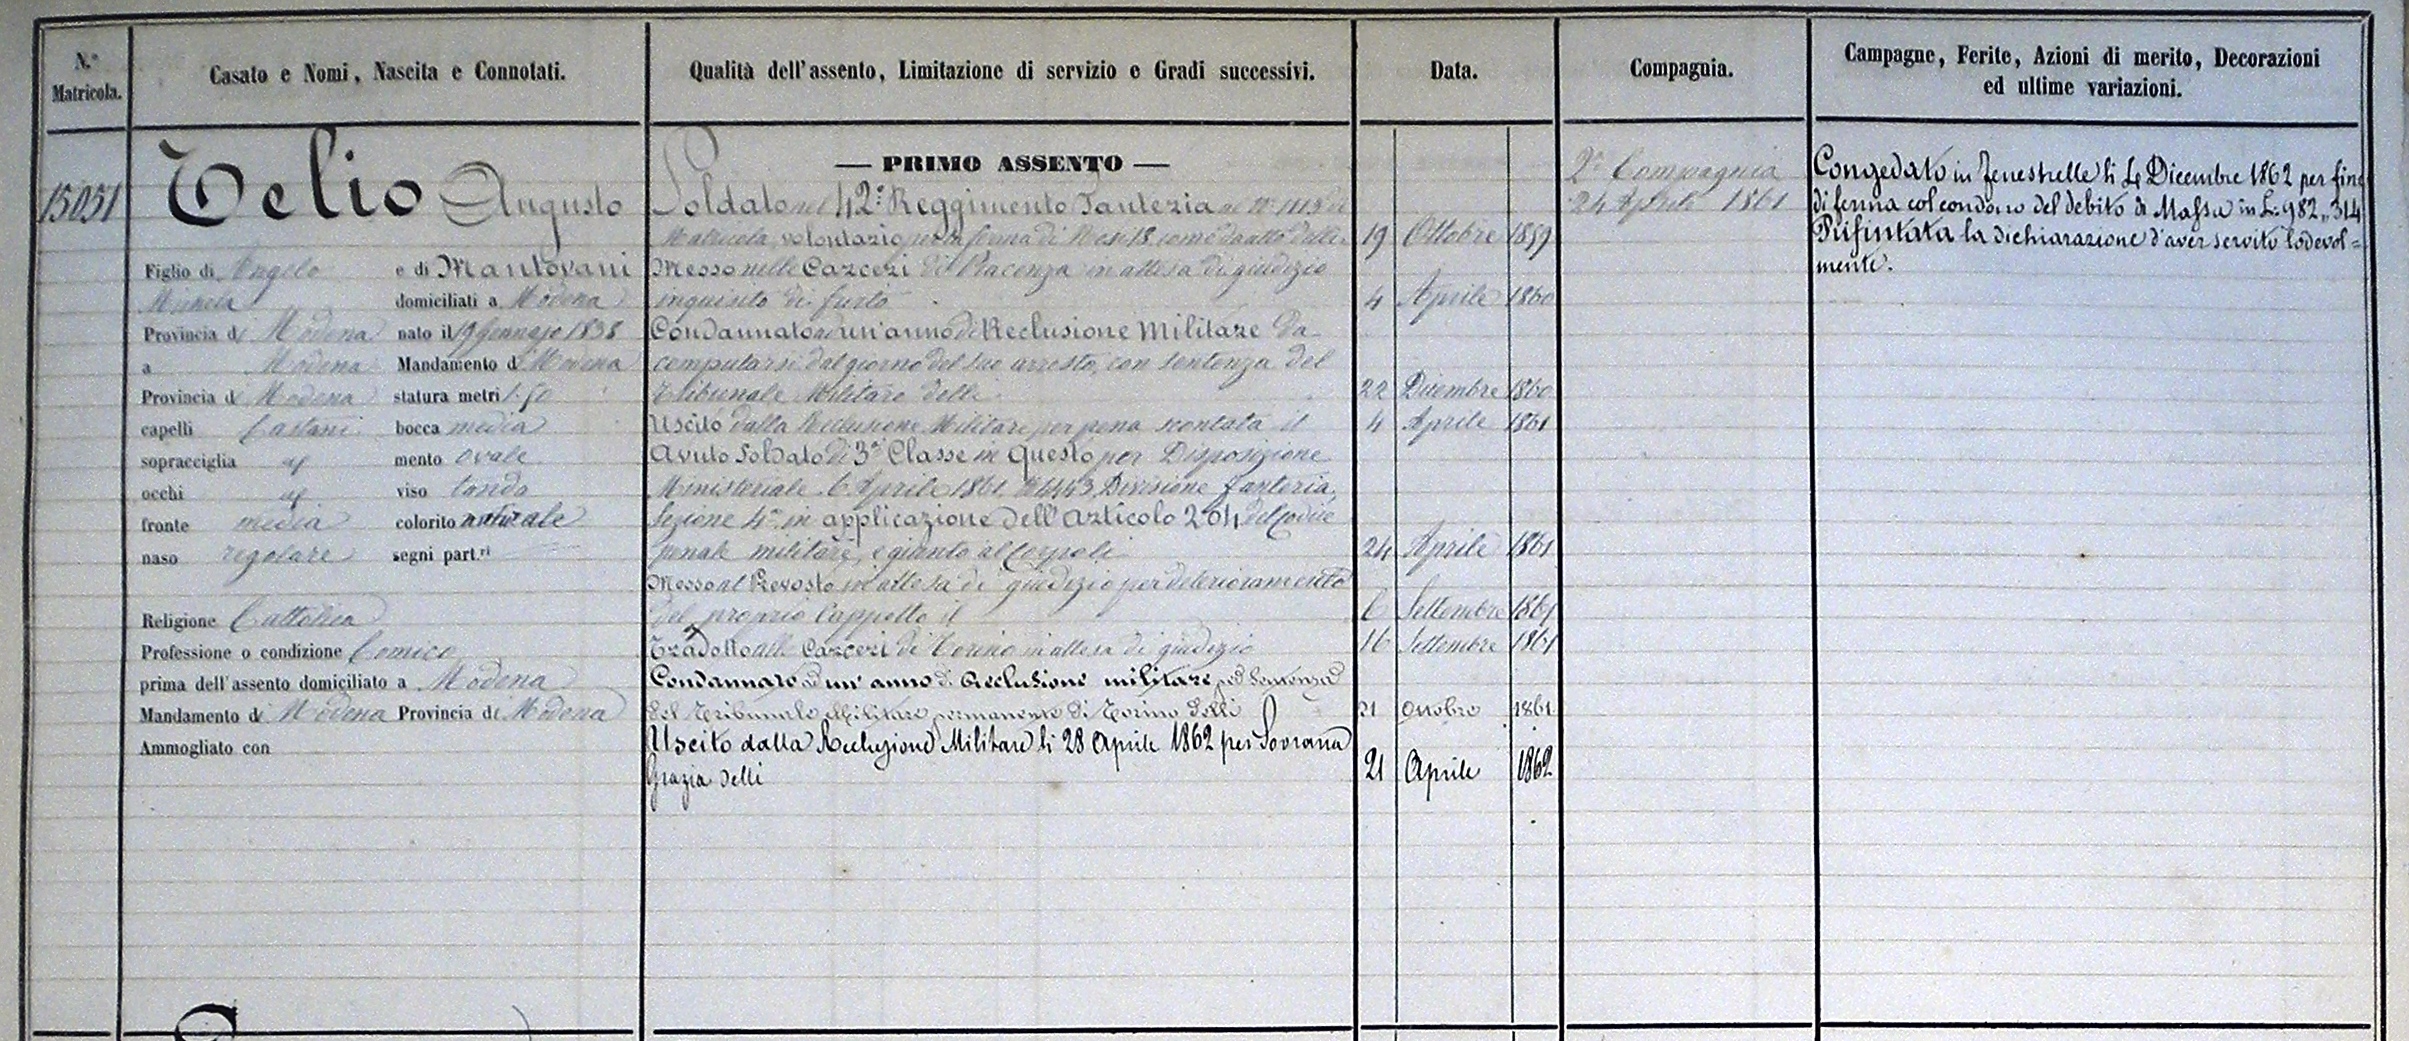 N.º Matricola.
Casato e Nomi, Nascita e Connotati.
Qualità dell'assento, Limitazione di servizio e Gradi successivi.
Data.
Compagnia.
Campagne, Ferite, Azioni di merito, Decorazioni
ed ultime variazioni.
15051
Telio Augusto
Figlio di Angelo e di Mantovani
domiciliati a Modena
Provincia di Modena nato il 19 Gennajo 1838
a Modena Mandamento di Modena
Provincia di Modena statura metri 1.50
capelli Castani bocca media
sopracciglia id mento ovale
occhi id viso tondo
fronte media colorito naturale
naso regolare segni part.ri
Religione Cattolica
Professione o condizione Comico
prima dell'assento domiciliato a Modena
Mandamento di Modena Provincia di Modena
Ammogliato con
— PRIMO ASSENTO —
Soldato nel 42º Reggimento Fanteria al Nº 1113 di
Matricola, volontario per la ferma di Mesi 18 come da atto delli 19 Ottobre 1859
Messo nelle Carceri di Piacenza in attesa di giudizio
inquisito di furto 4 Aprile 1860
Condannato ad un'anno di Reclusione Militare da
computarsi dal giorno del suo arresto, con sentenza del
Tribunale Militare delli 22 Dicembre 1860
Uscito dalla Reclusione Militare per pena scontata il 4 Aprile 1861
Avuto Soldato di 3ª Classe in Questo per Disposizione
Ministeriale 6 Aprile 1861 Nº 4443 Divisione fanteria,
Sezione 4ª in applicazione dell'Articolo 204 del Codice
penale militare, e giunto al Corpo li 24 Aprile 1861
Messo al Prevosto in attesa di giudizio per deterioramento
del proprio Cappotto il 6 Settembre 1861
Tradotto alle Carceri di Torino in attesa di giudizio 16 Settembre 1861
Condannato ad un' anno di Reclusione militare per Sentenza
del Tribunale Militare permanente di Torino delli 21 Ottobre 1861
Uscito dalla Reclusione Militare li 28 Aprile 1862 per Sovrana
Grazia delli 21 Aprile 1862
2ª Compagnia
24 Aprile 1861
Congedato in Fenestrelle li 4 Dicembre 1862 per fine
di ferma col condono del debito di Massa in L. 982,,314
la dichiarazione d'aver servito lodevol=
mente.